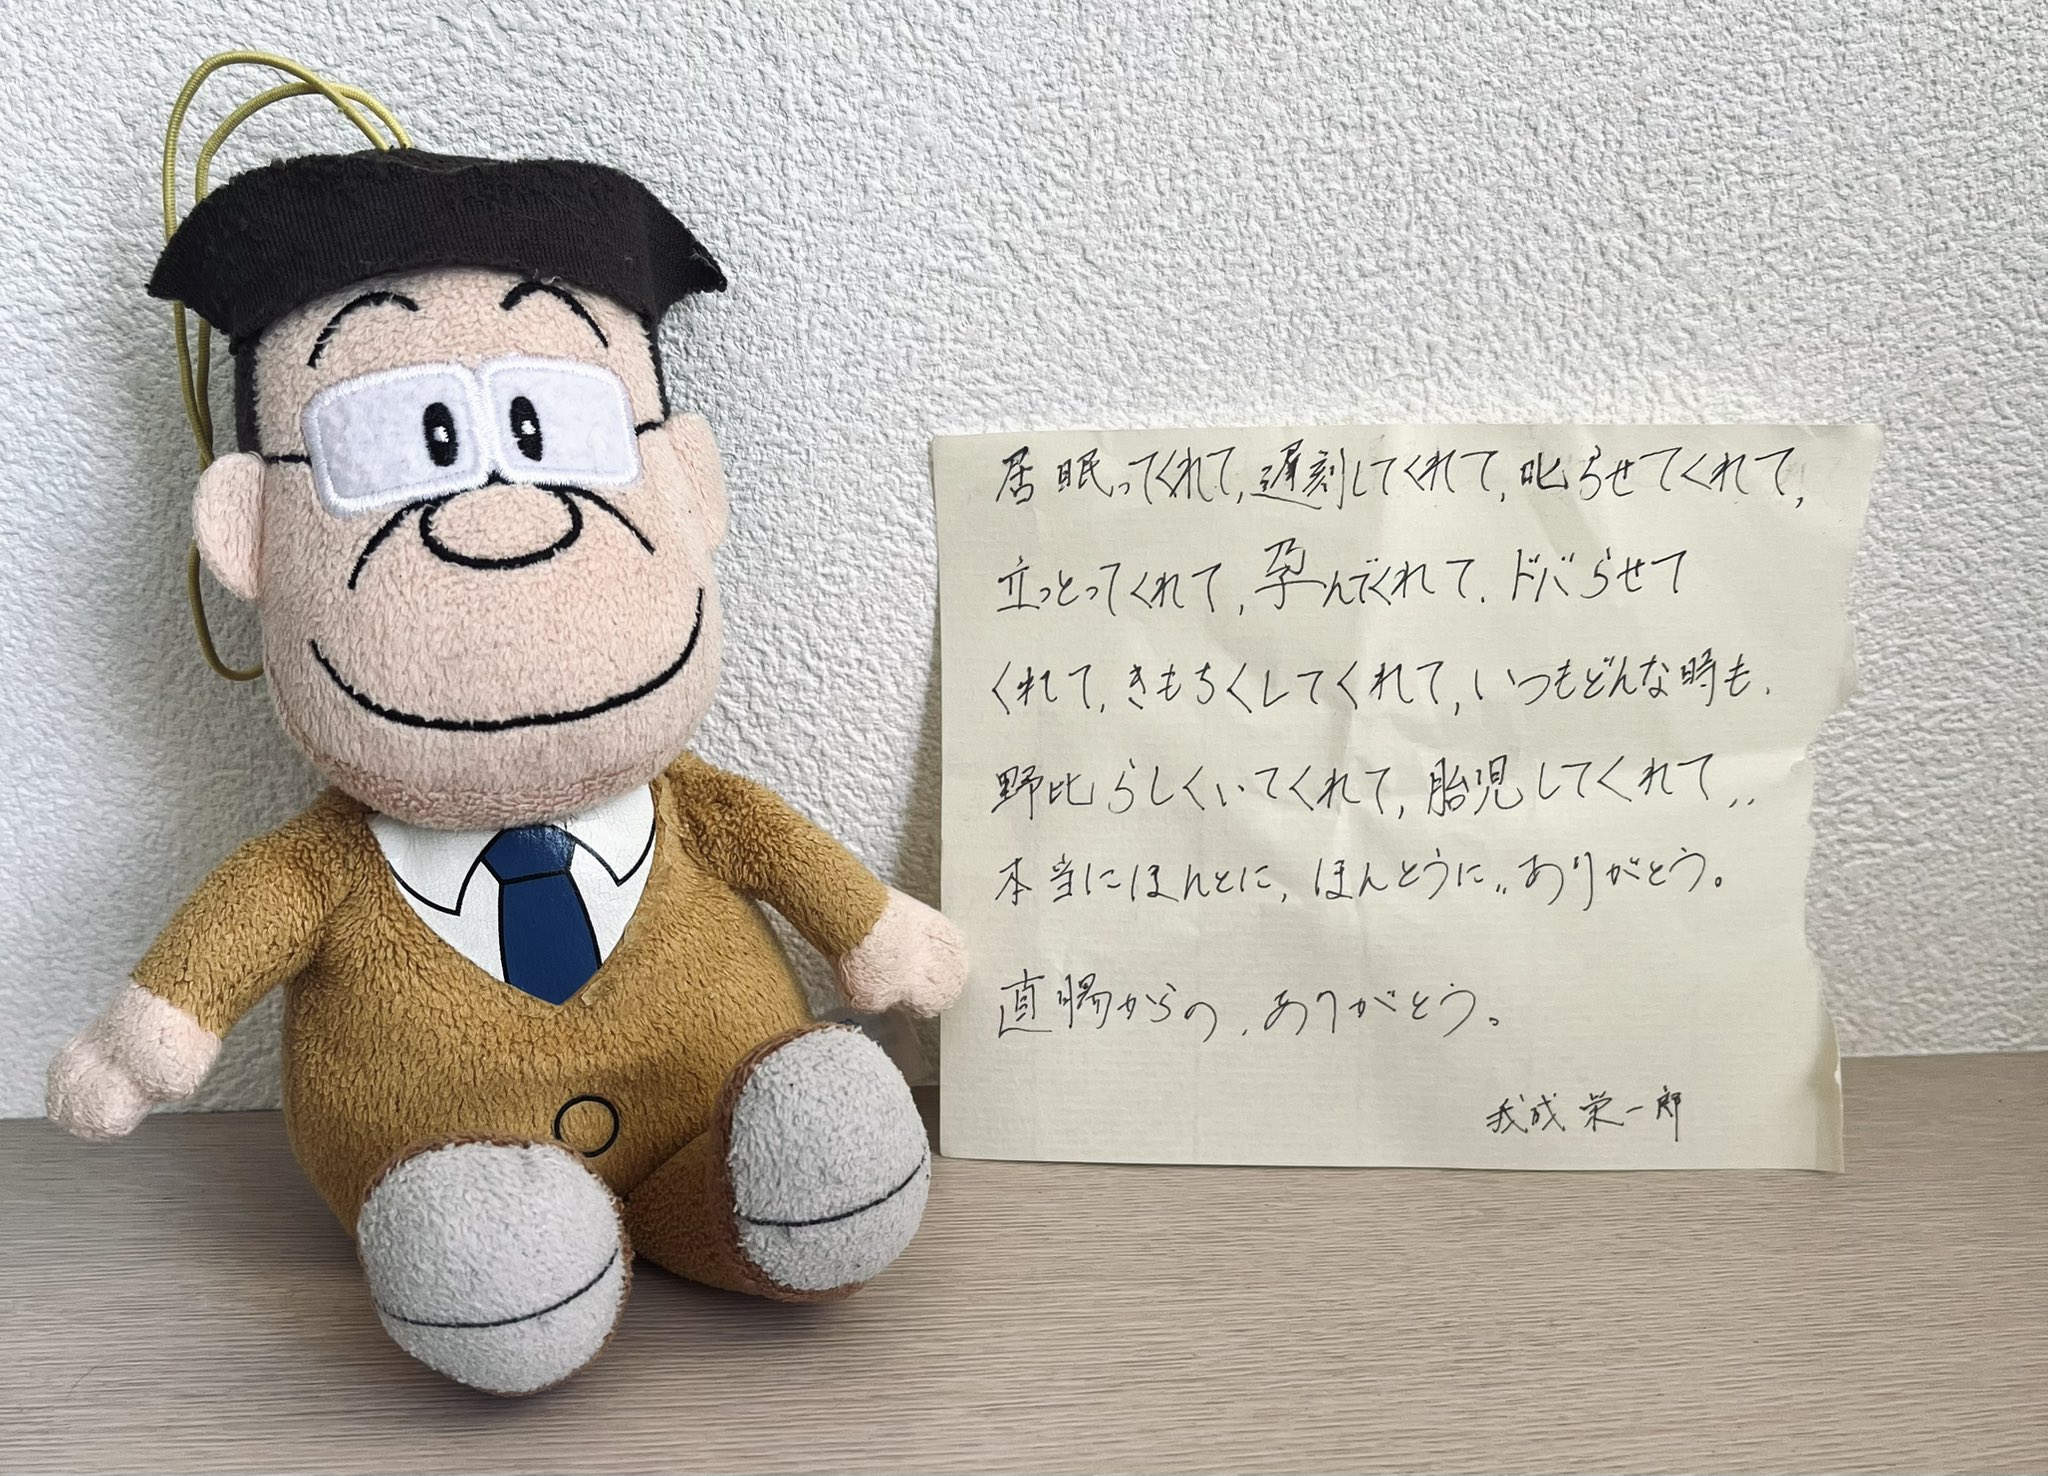 居眠ってくれて,遅刻してくれて,叱らせてくれて,
立っとってくれて,孕んでくれて.ドバらせて
くれて,きもちくしてくれて,いつもどんな時も.
野比らしくいてくれて,胎児してくれて..
本当にほんとに,ほんとうに..ありがとう。
直腸からの,ありがとう。
我成 栄一郎